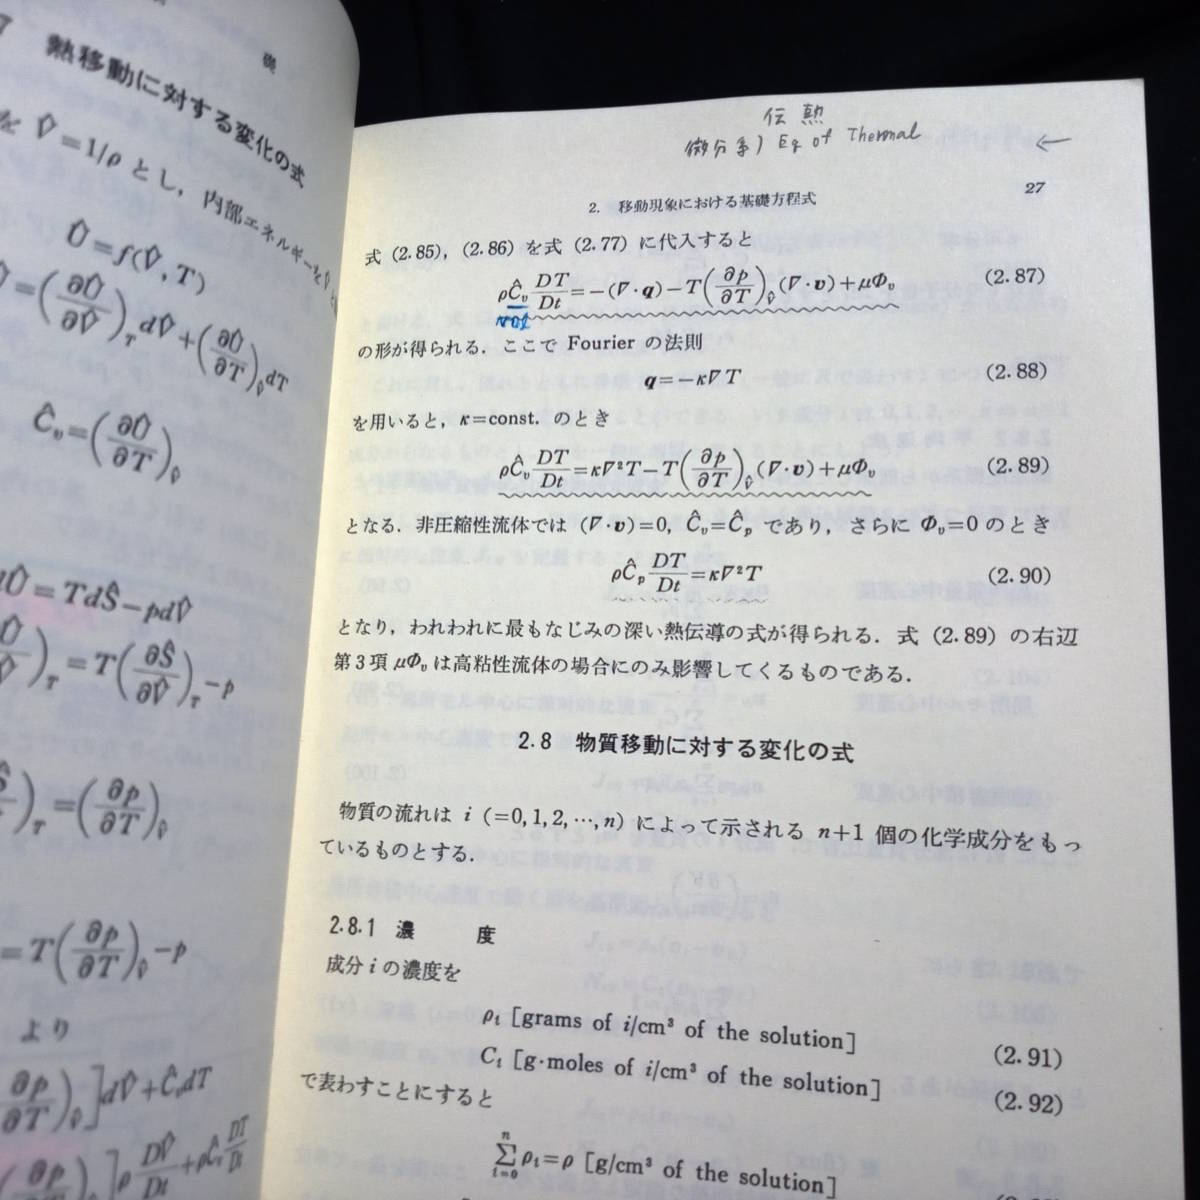 礎
熱移動に対する変化の式
を V̂=1/ρ とし，内部エネルギーを
Û=f(V̂, T)
=(∂Û/∂V̂)_T dV̂+(∂Û/∂T)_V̂ dT
Ĉ_v=(∂Û/∂T)_V̂
dÛ=TdŜ−pdV̂
)_T=T(∂Ŝ/∂V̂)_T−p
)_T=(∂p/∂T)_V̂
=T(∂p/∂T)_V̂−p
より
(∂p/∂T)_V̂]dV̂+Ĉ_v dT
(∂p/∂T)_V̂]ρ DV̂/Dt+ρĈ_v DT/Dt
伝熱
微分系) Eq of Thermal ←
2. 移動現象における基礎方程式 27
式 (2.85), (2.86) を式 (2.77) に代入すると
ρĈ_v DT/Dt=−(∇·q)−T(∂p/∂T)_V̂(∇·v)+μΦ_v (2.87)
の形が得られる．ここで Fourier の法則
q=−κ∇T (2.88)
を用いると，κ=const. のとき
ρĈ_v DT/Dt=κ∇²T−T(∂p/∂T)_V̂(∇·v)+μΦ_v (2.89)
となる．非圧縮性流体では (∇·v)=0, Ĉ_v=Ĉ_p であり，さらに Φ_v=0 のとき
ρĈ_p DT/Dt=κ∇²T (2.90)
となり，われわれに最もなじみの深い熱伝導の式が得られる．式 (2.89) の右辺
第3項 μΦ_v は高粘性流体の場合にのみ影響してくるものである．
2.8 物質移動に対する変化の式
物質の流れは i (=0,1,2,…,n) によって示される n+1 個の化学成分をもっ
ているものとする．
2.8.1 濃 度
成分 i の濃度を
ρ_i [grams of i/cm³ of the solution] (2.91)
C_i [g·moles of i/cm³ of the solution] (2.92)
で表わすことにすると
Σ_{i=0}^{n} ρ_i=ρ [g/cm³ of the solution]